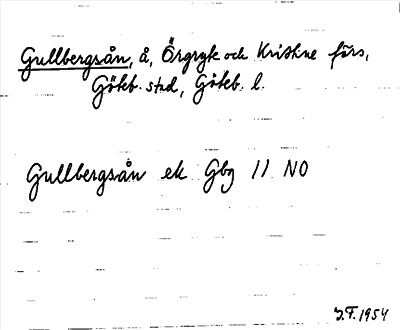 Gullbergsån, å, Örgryte och Kristine förs,
Göteb. stad, Göteb. l.
Gullbergsån ek Gbg 11 NO
J.F. 1954